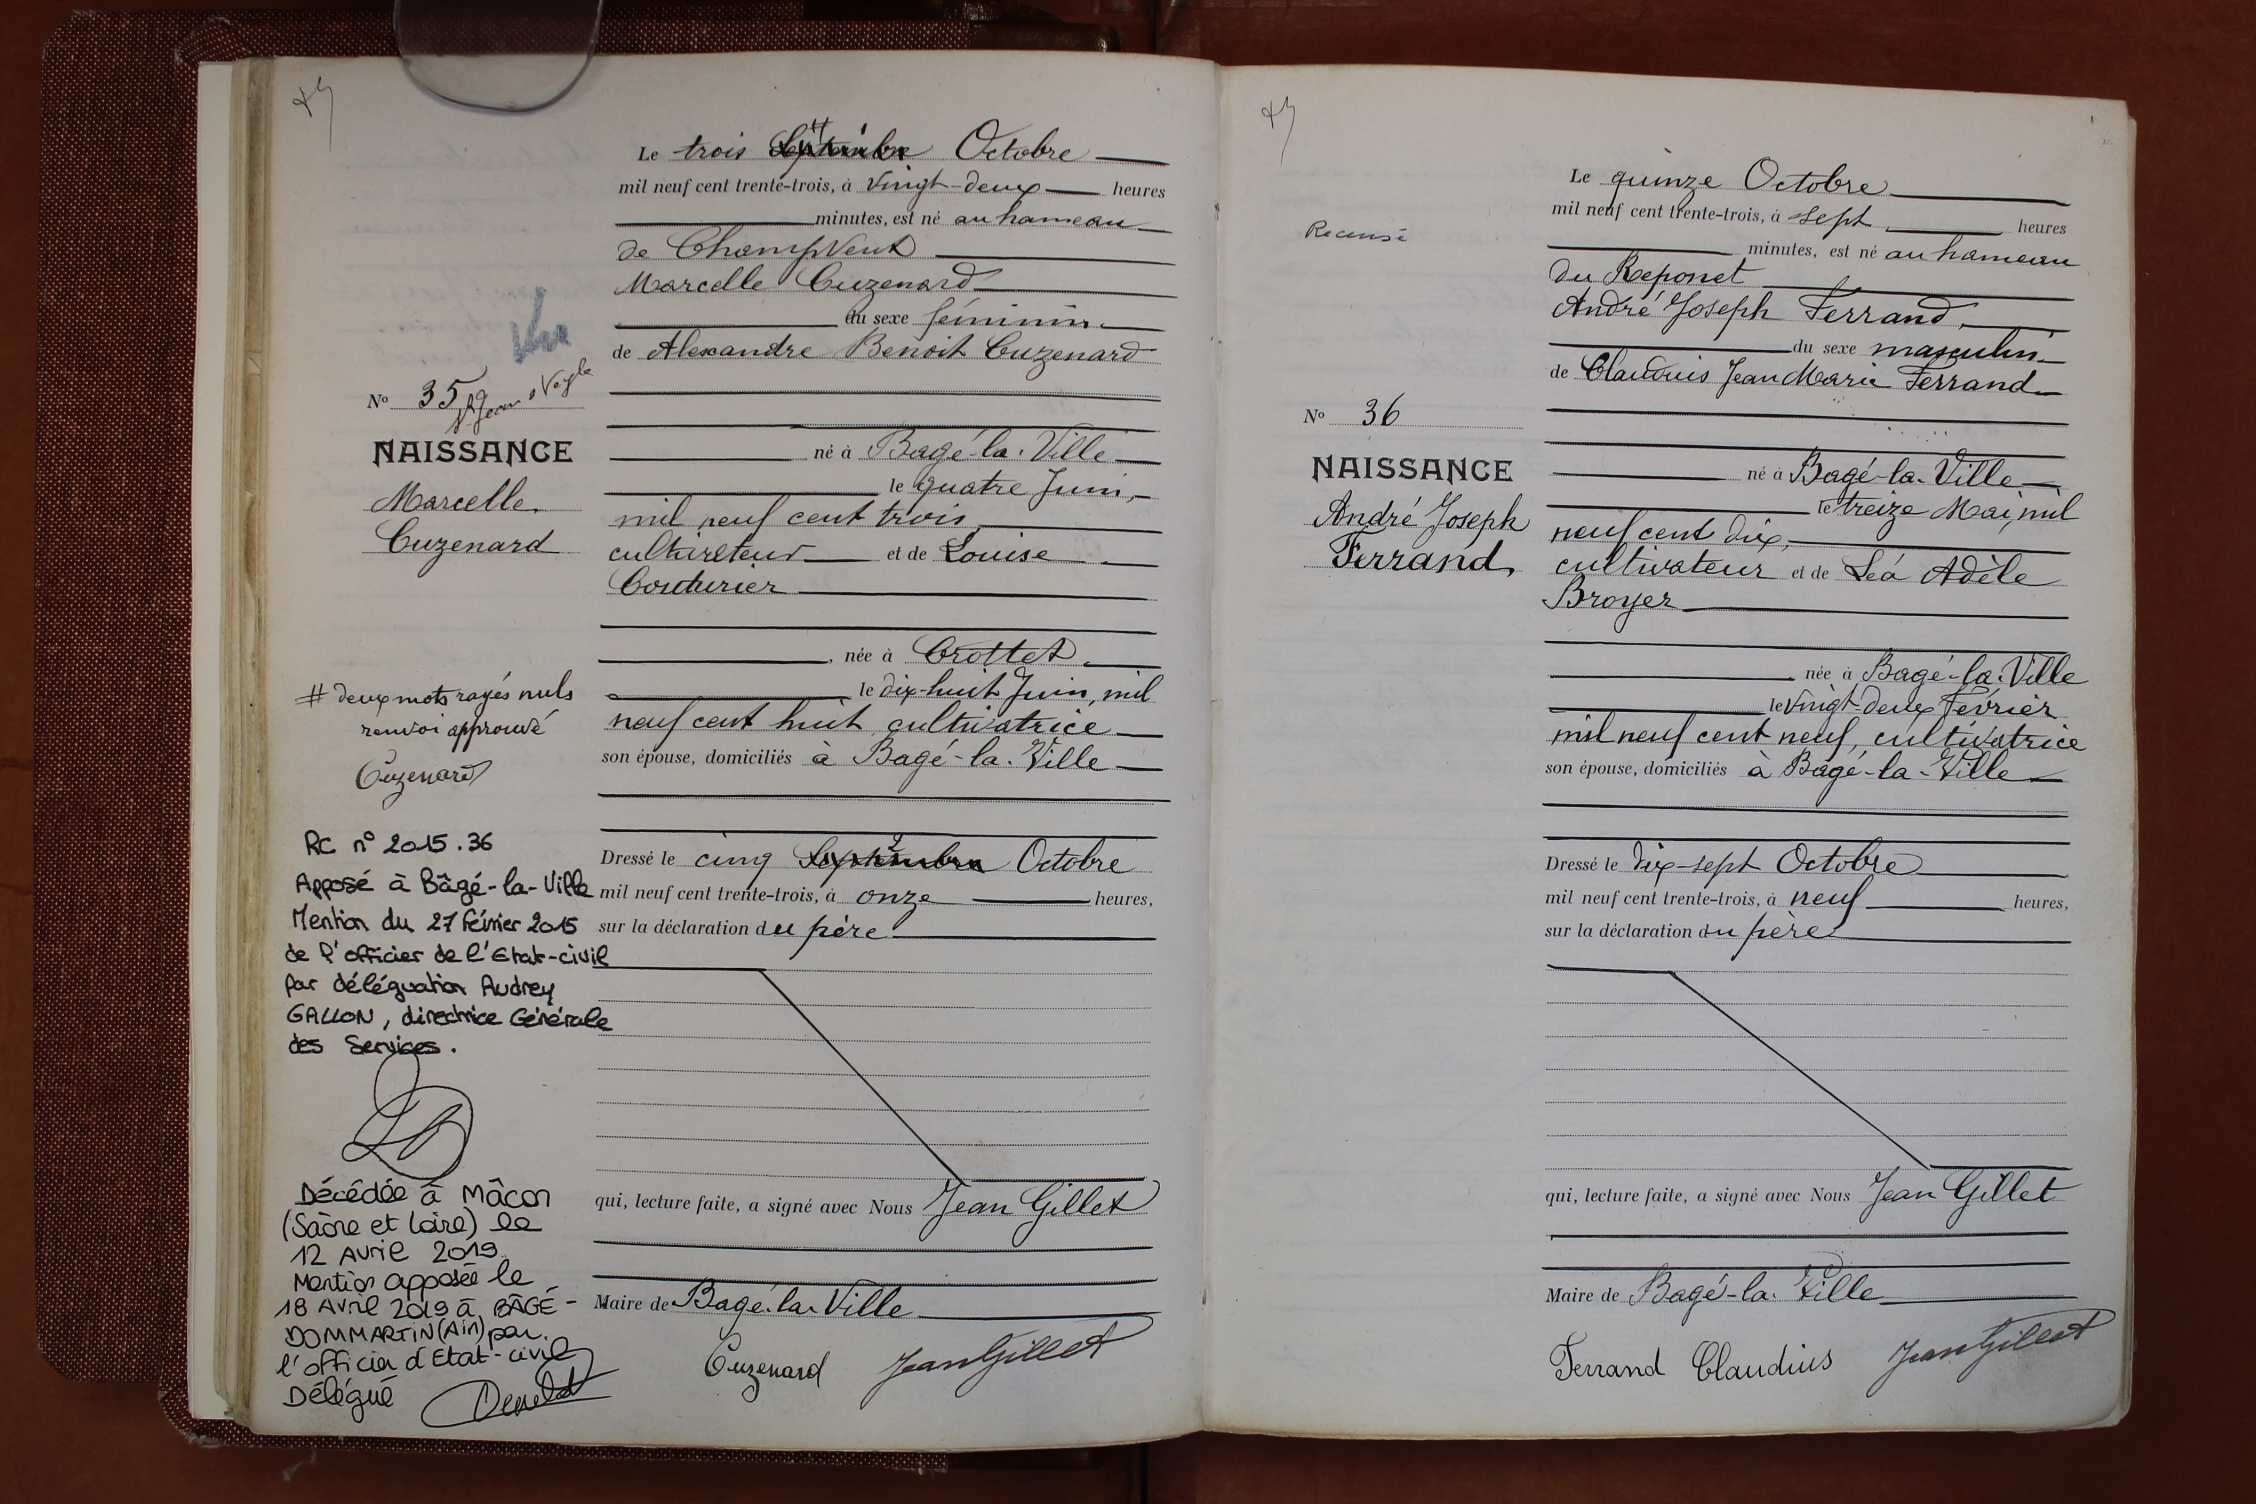 Le trois Septembre Octobre
mil neuf cent trente-trois, à vingt-deux heures
minutes, est né au hameau
de Champvent
Marcelle Cuzenard
du sexe féminin
de Alexandre Benoit Cuzenard
né à Bagé-la-Ville
le quatre Juin,
mil neuf cent trois,
cultivateur et de Louise
Couturier
, née à Crottet
le dix-huit Juin, mil
neuf cent huit, cultivatrice
son épouse, domiciliés à Bagé-la-Ville
Dressé le cinq Septembre Octobre
mil neuf cent trente-trois, à onze heures,
sur la déclaration du père
qui, lecture faite, a signé avec Nous Jean Gillet
Maire de Bagé-la-Ville
Cuzenard JeanGillet
Vu
No 35
St Jean s Veyle
NAISSANCE
Marcelle
Cuzenard
# deux mots rayés nuls
renvoi approuvé
Cuzenard
RC n° 2015.36
Apposé à Bâgé-la-Ville
Mention du 27 février 2015
de l'officier de l'Etat-civil
par délégation Audrey
GALLON, directrice Générale
des Services.
Décédée à Mâcon
(Saône et Loire) le
12 Avril 2019
Mention apposée le
18 Avril 2019 à BÂGÉ-
DOMMARTIN (Ain) par
l'officier d'Etat-civil
Délégué
Recensé
No 36
NAISSANCE
André Joseph
Ferrand
Le quinze Octobre
mil neuf cent trente-trois, à sept heures
minutes, est né au hameau
du Reponet
André Joseph Ferrand
du sexe masculin
de Claudius Jean Marie Ferrand
né à Bagé-la-Ville
le treize Mai, mil
neuf cent dix,
cultivateur et de Léa Adèle
Broyer
née à Bagé-la-Ville
le vingt-deux Février
mil neuf cent neuf, cultivatrice
son épouse, domiciliés à Bagé-la-Ville
Dressé le dix-sept Octobre
mil neuf cent trente-trois, à neuf heures,
sur la déclaration du père
qui, lecture faite, a signé avec Nous Jean Gillet
Maire de Bagé-la-Ville
Ferrand Claudius JeanGillet